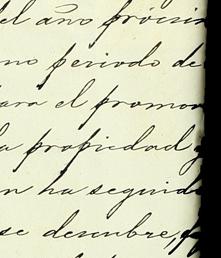 el año próxim
no periodo de
para el promov
la propiedad y
n ha seguido
se descubre, y